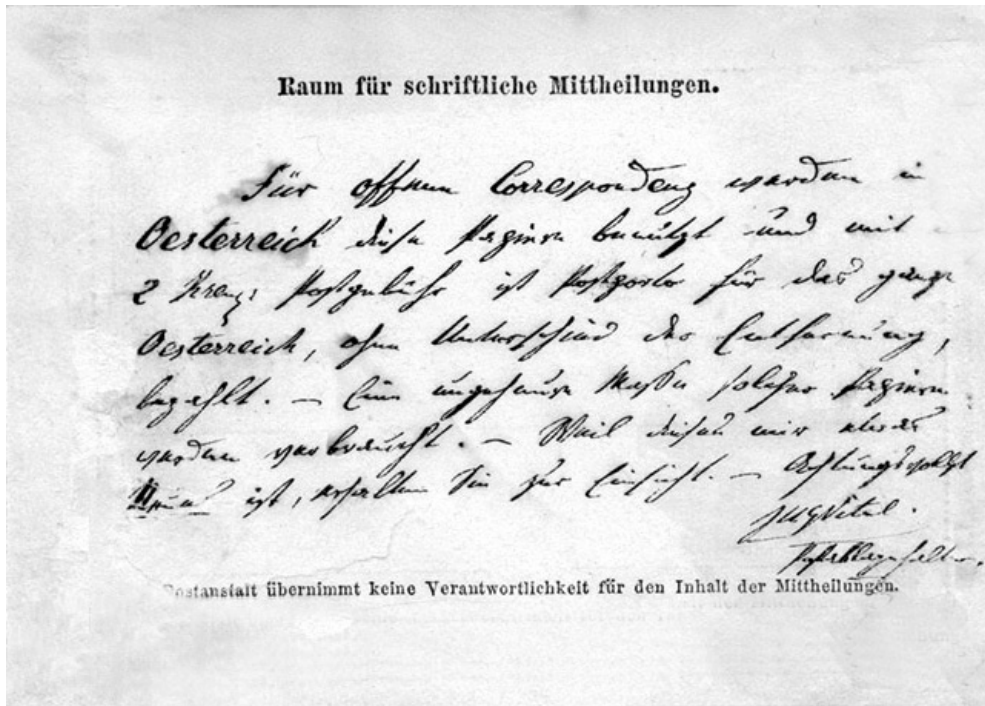 Raum für schriftliche Mittheilungen.
Für offene Correspondenz werden in
Oesterreich diese Papiere benützt und mit
2 Kreuz: Postgebühr ist Postporto für das ganze
Oesterreich, ohne Unterschied der Entfernung,
bezahlt. – Eine ungeheure Masse solcher Papiere
werden verbraucht. – Weil dieses mir etwas
Neues ist, erhalten Sie zur Einsicht. – Achtungsvollst
Postablagehalter.
Postanstalt übernimmt keine Verantwortlichkeit für den Inhalt der Mittheilungen.